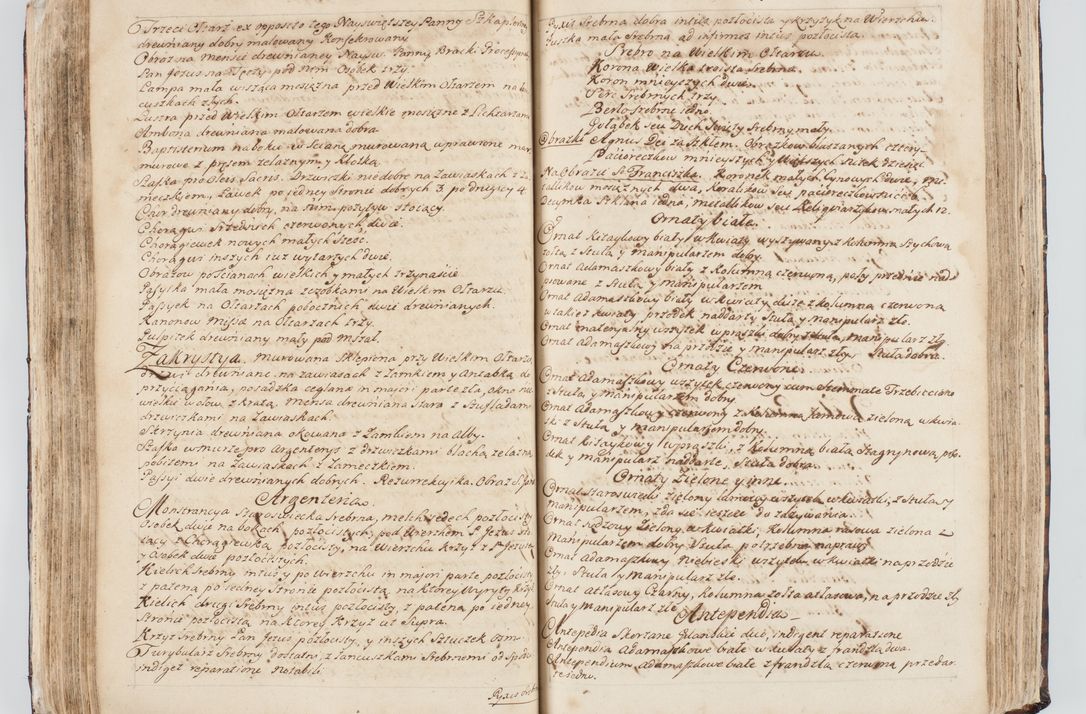 Trzeci Ołtarz ex opposito tego Nayświętszey Panny Szkaplerzney
drewniany dobry malowany Konsekrowany
Obraz na mensie drewnianey Nayśw: Panny Brack: Processyonal
Pan Jezus na Tęczy pod nem Osobek trzy.
Lampa mała wisząca mosiężna przed Wielkim Ołtarzem na
cuszkach złych.
Lustra przed Wielkim Ołtarzem wielkie mosiężne z Lichtarzami
Ambona drewniana malowana dobra
Baptisterium na boku w ścianę murowaną wprawione mar
murowe z prętem żelaznym y kłotką
Szafka pro Oleis Sacris. Drzwiczki niedobre na zawiaskach z za
meczkiem, Ławek po jedney Stronie dobrych 3. po drugiey 4.
Chor drewniany dobry, na nim pozytyw stoiący
Chorągwi Średnich czerwonych dwie.
Chorągiewek nowych małych Sześć.
Chorągwi inszych iuż wytartych dwie.
Obrazow po ścianach wielkich y małych trzynaście
Passyika mała mosiężna z ozobkami na Wielkim Ołtarzu.
Passyek na Ołtarzach pobocznich dwie drewnianych.
Kanonow Missa na Ołtarzach trzy.
Pulpitek drewniany mały pod Mszał.
Zakrystya. murowana Sklepiona przy Wielkim Ołtarzu
drzwi drewniane na zawiasach z Zamkiem y Antabką do
przyciągania, posadzka ceglana in majori parte zła, okno nie
wielkie w ołow z kratą. Mensa drewniana Stara z Szufladami
drzwiczkami na Zawiaskach.
Skrzynia drewniana okowana z Zamkiem na Alby.
Szafka w murze pro Argenterys z drzwiczkami blachą żelazną
pobitemi na Zawiaskach z Zameczkiem.
Passyi dwie drewnianych dobrych. Rezurrekcyika. Obraz S.
Argenteria.
Monstrancya Staroświecka Srebrna, melchisedech pozłocisty
Osobek dwie na bokach pozłocistych, pod wierzchem P. Jezus sto
iący z Chorągiewką pozłocisty, na Wierzchu Krzyż z P. Jezusem
y Osobek dwie pozłocistych.
Kielich Srebrny intus y po Wierzchu in majori parte pozłocisty
z pateną po iedney Stronie pozłocistą, na ktorey Wyryty Krzyż
Kielich drugi Srebrny intus pozłocisty, z pateną po iedney
Stronie pozłocistą na ktorey Krzyż ut Supra.
Krzyż Srebrny Pan Jezus pozłocisty, y inszych Sztuczek osm
Turybularz Srebrny dostatni z Łancuszkami Srebrnemi od Spodu
indiget reparatione Notabili
Pyxis Srebr

Pyxis Srebrna dobra intus pozłocista y krzyżyk na Wierzchu.
Puszka mała Srebrna ad infirmos intus pozłocista
Srebro na Wielkim Ołtarzu
Korona Wielka troista Srebrna.
Koron mnieyszych dwie.
Serc Srebrnych trzy.
Berło Srebrne jedno.
Gołąbek seu Duch Swięty Srebrny mały.
Obrazki Agnus Dei za Szkłem. Obrazkow blaszanych cztery.
Pacioreczkow mnieyszych y Większych Sztek dziesięć
Na Obrazie S. Franciszka. Koronek małych Cynowych dwie, me
talikow mosiężnych dwa, Koralikow seu paciereczkow
Deymka Szklana iedna, metalikow seu Reliquiarzykow małych 12.
Ornaty białe.
Ornat Kitaykowy biały w kwiaty wyszywany z Kolumną Sychową
żołtą z Stułą y Manipularzem dobry.
Ornat Adamaszkowy biały z Kolumną czerwoną, poły przednie nad
psowane z Stułą y Manipularzem
Ornat Adamaszkowy biały w kwiaty duże z Kolumną czerwoną
w takież kwiaty przodek naddarty Stuła y Manipularz złe.
Ornat materyalny wszytek w prążki dobry Stuła, Manipularz zły
Ornat Adamaszkowy na przodzie y Manipularz zły. Stuła dobra.
Ornaty Czerwone.
Ornat Adamaszkowy wszytek czerwony cum Stemmate Trzebicciano
z Stułą y Manipularzem dobry
Ornat Adamaszkowy czerwony z Kolumną Jamową zieloną w kwia
tki z Stułą y Manipularzem dobry.
Ornat Kitaykowy w prążki z Kolumną białą Stagnynową, przo
dek y Manipularz naddarte, Stuła dobra.
Ornaty Zielone y inne.
Ornat Staroswiecki zielony lamowy wszytek w kwiatki, z Stułą y
Manipularzem, zda się ieszcze do zażywania.
Ornat Rydzowy Zielony w kwiatki, Kolumna rasowa zielona z
Manipularzem dobry, Stuła potrzebna naprawy
Ornat Adamaszkowy Niebieski wszytek w kwiatki na przedzie
zły, Stuła y Manipularz złe.
Ornat atłasowy Czarny, Kolumna żołta atłasowa, na przodzie zły
Stuła y Manipularz złe.
Antependia
Antepedia Skorzane Hlanbici dwie, indigent reparatione
Antepedia Adamaszkowe białe w kwiaty z frandzlą dwa.
Antependium Adamaszkowe białe z frandzlą czerwoną przedar
te iedno.